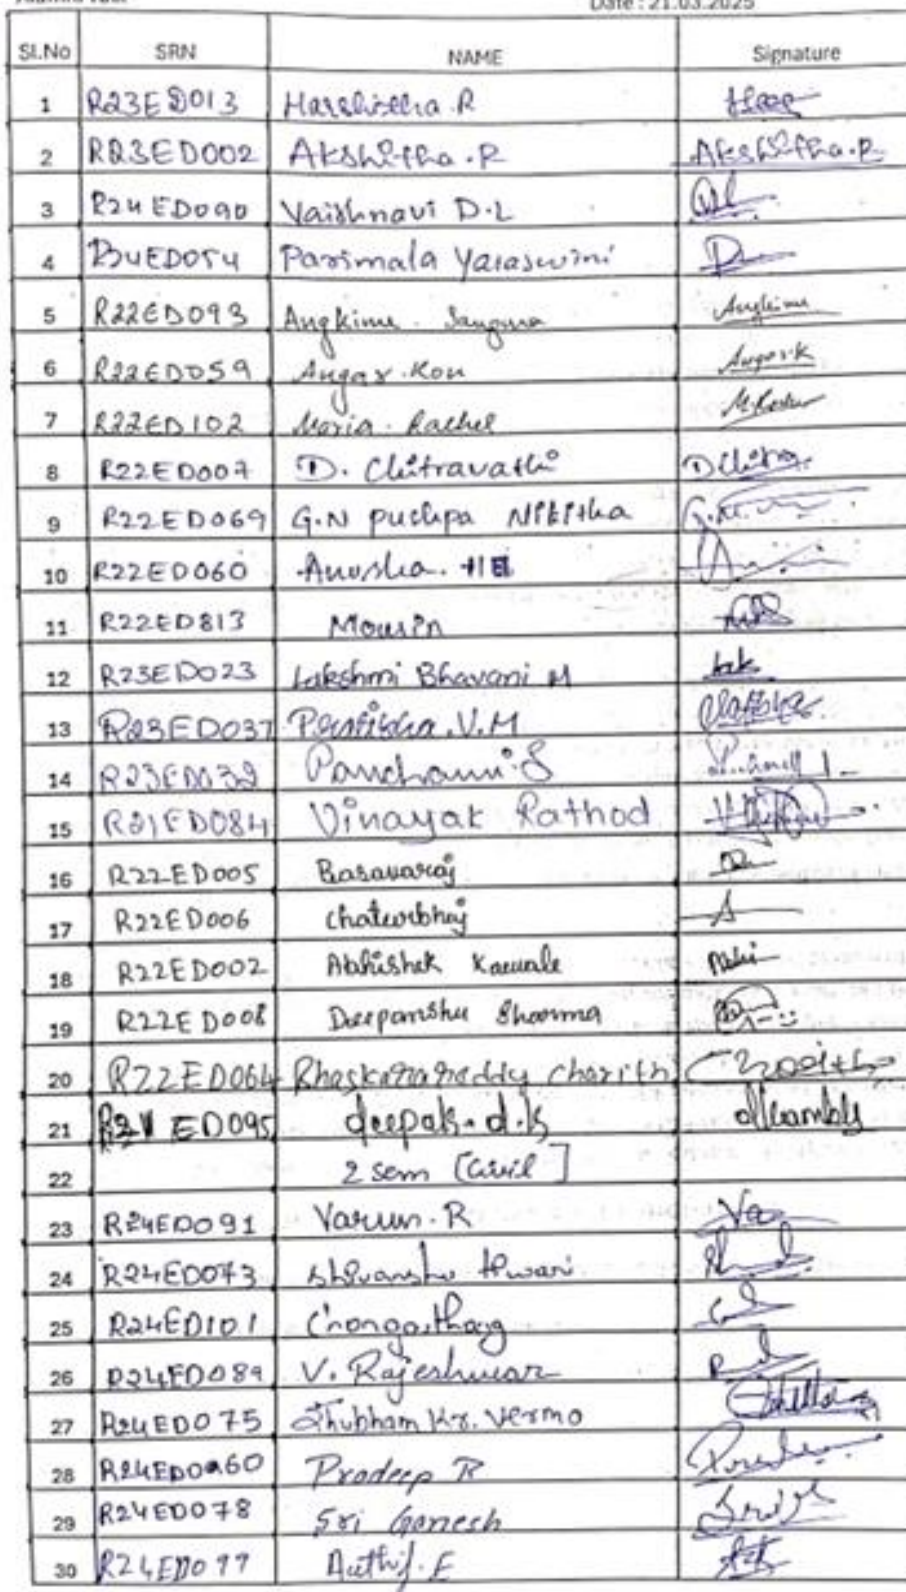 Date : 21.03.2025
Sl.No SRN NAME Signature
1 R23ED013 Harshitha R
2 R23ED002 Akshitha.R Akshitha.R
3 R24ED090 Vaishnavi D.L
4 R24ED054 Parimala Yaraswini
5 R22ED093 Angkime Sangma Angkime
6 R22ED059 Angar Kon Angar k
7 R22ED102 Maria. Rachel
8 R22ED007 D. Chitravathi DChitra
9 R22ED069 G.N puchpa Nikitha
10 R22ED060 Anusha.
11 R22ED813 Mousin
12 R23ED023 Lakshmi Bhavani M Lak
13 R23ED037 Pratibha.V.M
14 Panchami.S
15 R21ED084 Vinayak Rathod
16 R22ED005 Basavaraj
17 R22ED006 Chaturbhuj
18 R22ED002 Abhishek Kawale
19 R22ED008 Deepanshu Sharma
20 R22ED064 Bhaskarareddy Charith Charith
21 ED095 deepak.d.k
22 2 sem [Civil]
23 R24ED091 Varun.R Va
24 R24ED073 Shivanshu tiwari
25 R24ED101 Crongothang
26 R24ED089 V. Rajeshwar
27 R24ED075 Shubham Kr. Verma
28 Pradeep R
29 R24ED078 Sri Ganesh
30 R24ED077